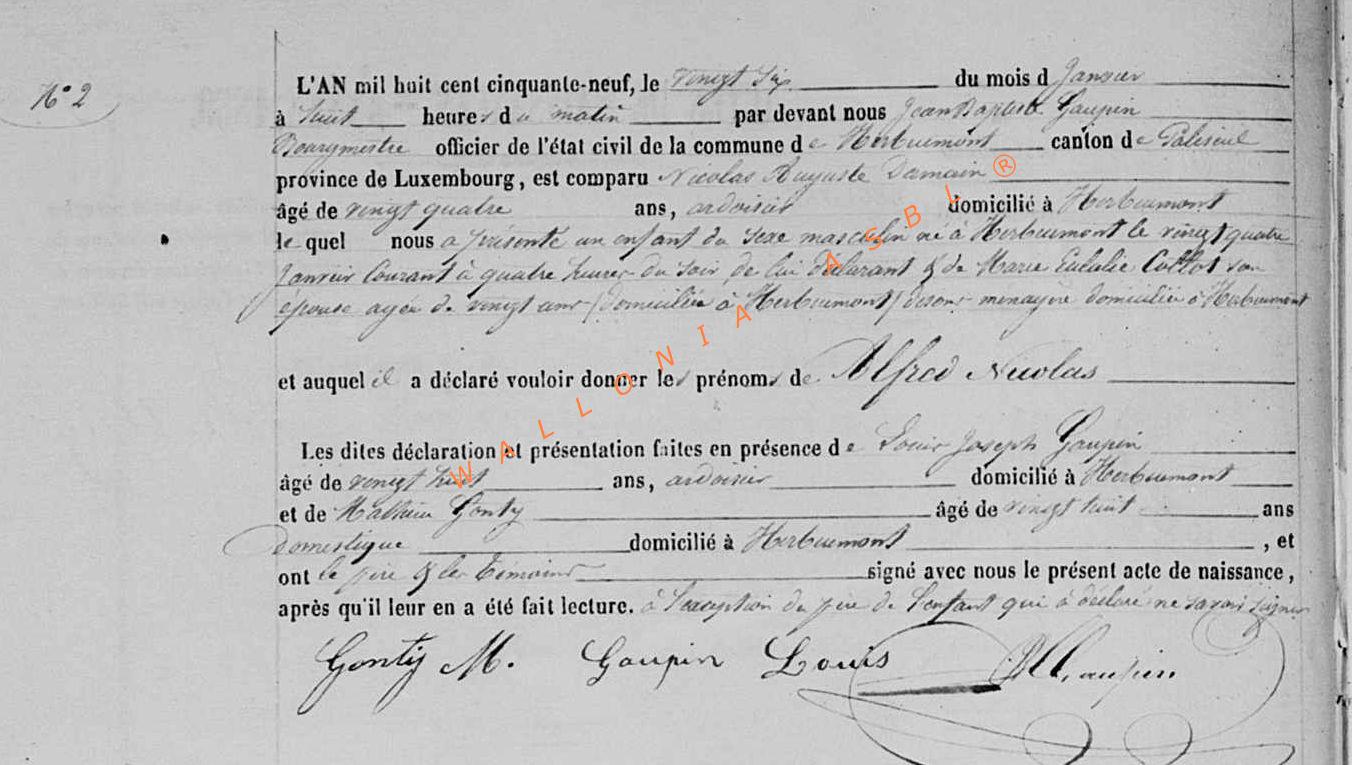 N° 2
L'AN mil huit cent cinquante-neuf, le vingt six du mois d Janvier
à huit heures du matin par devant nous Jean Baptiste Gaupin
Bourgmestre officier de l'état civil de la commune de Herbeumont canton de Paliseul
province de Luxembourg, est comparu Nicolas Auguste Damain
âgé de vingt quatre ans, ardoisier domicilié à Herbeumont
le quel nous a présenté un enfant du sexe masculin né à Herbeumont le vingt quatre
Janvier Courant à quatre heures du soir, de lui déclarant & de Marie Eulalie Collot son
épouse agée de vingt ans (domiciliée à Herbeumont) menagère domiciliée à Herbeumont
et auquel il a déclaré vouloir donner les prénoms de Alfred Nicolas
Les dites déclaration et présentation faites en présence de Louis Joseph Gaupin
âgé de vingt huit ans, ardoisier domicilié à Herbeumont
et de Mathieu Gonty âgé de vingt huit ans
domestique domicilié à Herbeumont, et
ont le père & les témoins signé avec nous le présent acte de naissance,
après qu'il leur en a été fait lecture. à l'exception du père de l'enfant qui à déclaré ne savoir signer
Gonty M. Gaupin Louis
WALLONIA ASBL®